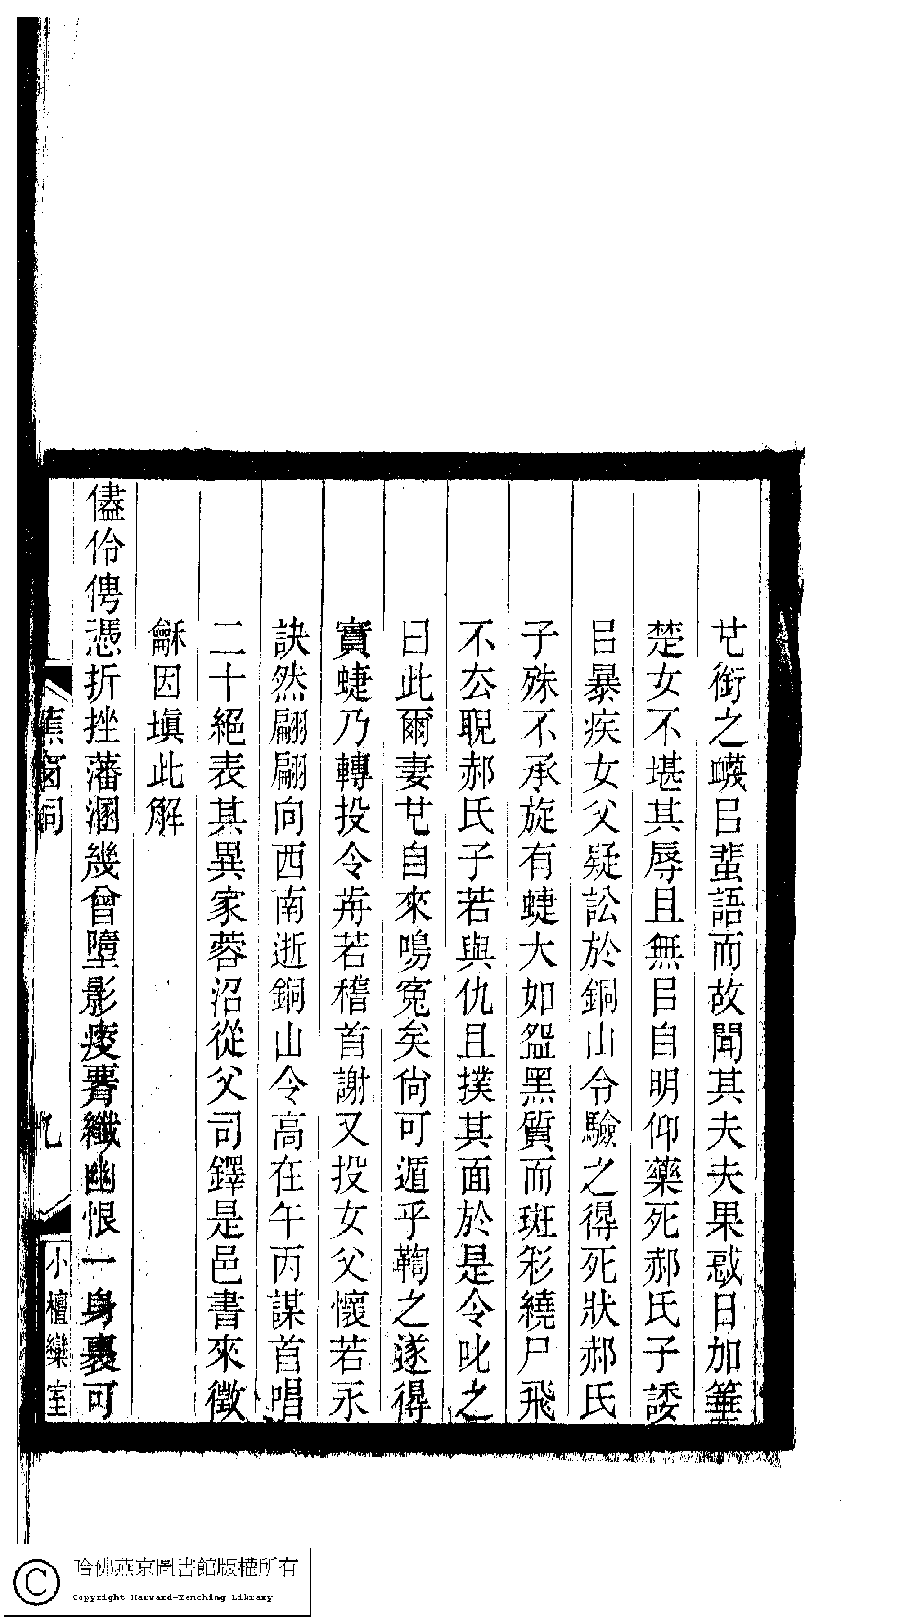 芘銜之蠛㠯蜚語而故聞其夫夫果惑日加箠
楚女不堪其辱且無㠯自明仰藥死郝氏子諉
㠯暴疾女父疑訟於銅山令驗之得死狀郝氏
子殊不承旋有蜨大如盌黑質而斑彩繞尸飛
不厺睨郝氏子若與仇且撲其面於是令叱之
曰此爾妻芘自來鳴冤矣尙可遁乎鞫之遂得
實蜨乃轉投令前若稽首謝又投女父懷若永
訣然翩翩向西南逝銅山令高在午丙謀首唱
二十絕表其異家蓉沼從父司鐸是邑書來徵
龢因塡此解
儘伶俜憑折挫藩溷幾曾墮影痿香纖幽恨一身裹可
蕉窗詞
九
小檀欒室
哈佛燕京圖書館版權所有
Copyright Harvard-Yenching Library